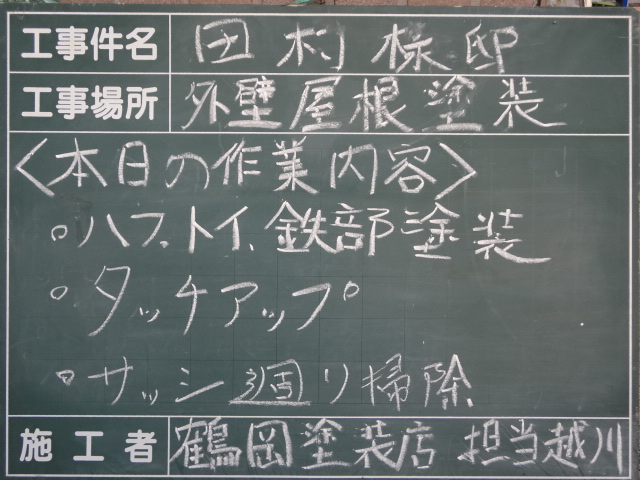 工事件名 田村様邸
工事場所 外壁屋根塗装
〈本日の作業内容〉
○ハフ、トイ、鉄部塗装
○タッチアップ
○サッシ週り掃除
施工者 鶴岡塗装店 担当越川